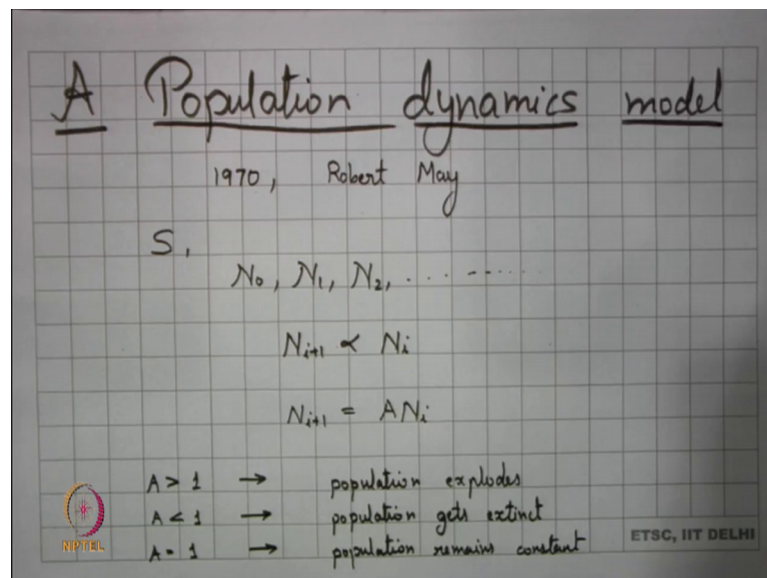 A Population dynamics model
1970, Robert May
S,
N₀, N₁, N₂, ...........
Nᵢ₊₁ ∝ Nᵢ
Nᵢ₊₁ = ANᵢ
A > 1 → population explodes
A < 1 → population gets extinct
A = 1 → population remains constant
NPTEL
ETSC, IIT DELHI